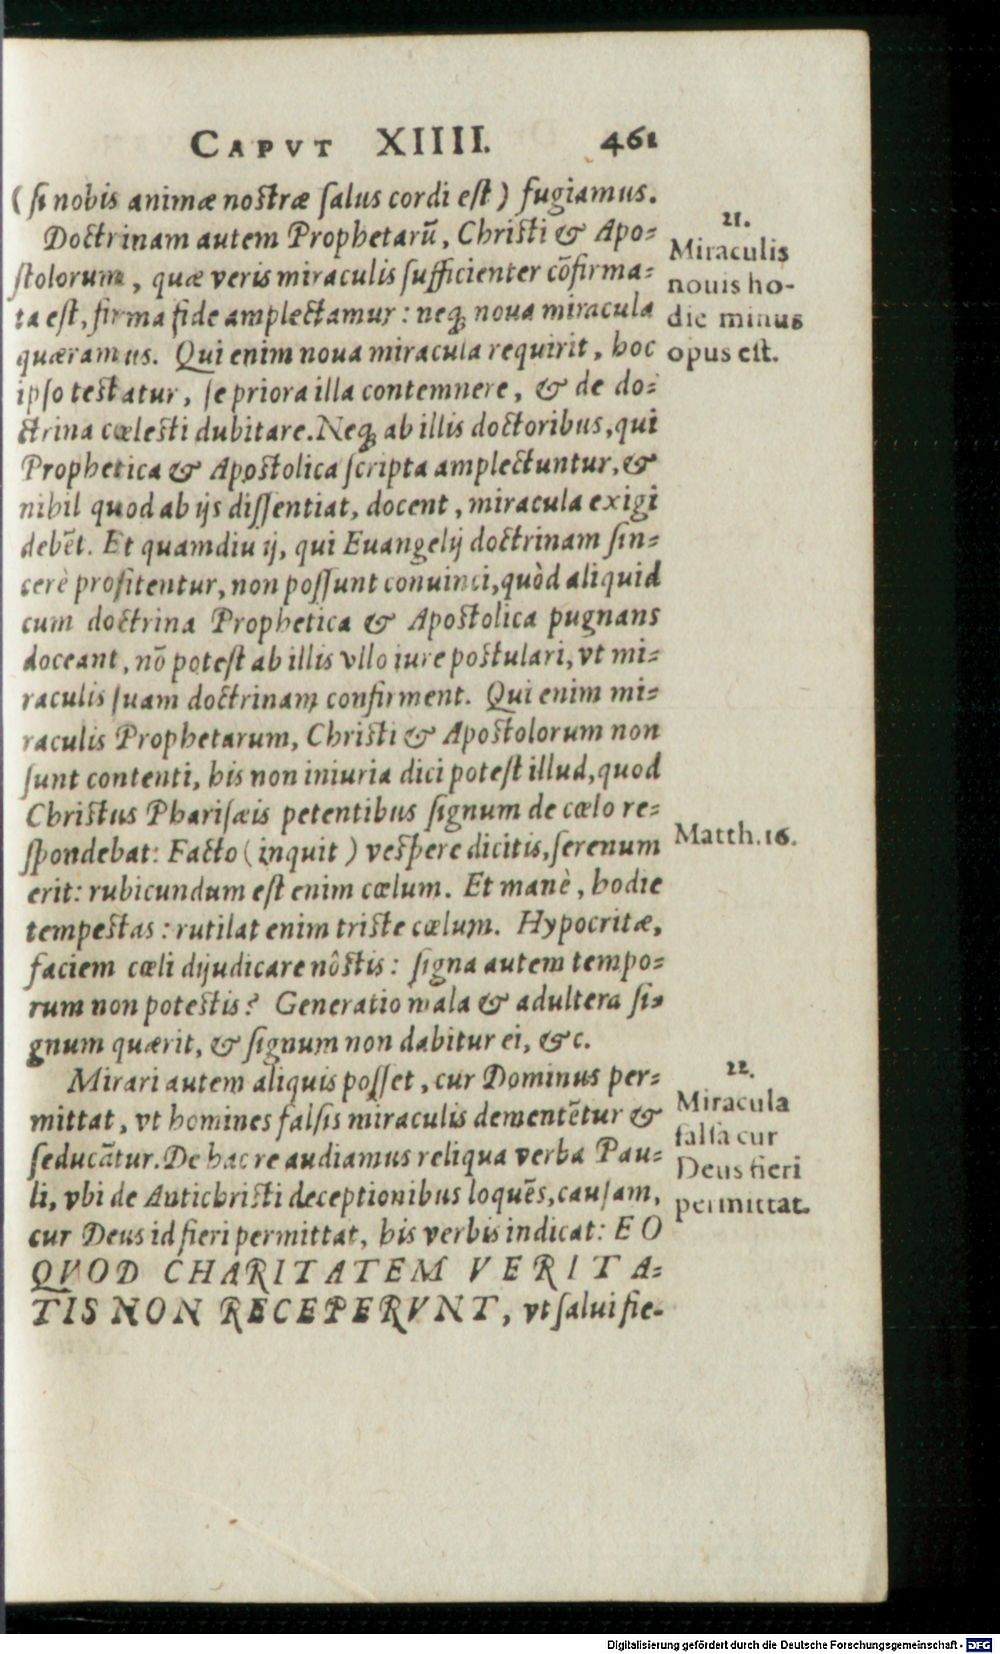 CAPVT XIIII. 461
(ſi nobis animæ noſtræ ſalus cordi eſt) fugiamus.
Doctrinam autem Prophetarũ, Chriſti & Apo-
ſtolorum, quæ veris miraculis ſufficienter cõfirma-
ta eſt, firma fide amplectamur: neq; noua miracula
quæramus. Qui enim noua miracula requirit, hoc
ipſo teſtatur, ſe priora illa contemnere, & de do-
ctrina cœleſti dubitare. Neq; ab illis doctoribus, qui
Prophetica & Apoſtolica ſcripta amplectuntur, &
nihil quod ab ijs diſſentiat, docent, miracula exigi
debẽt. Et quamdiu ij, qui Euangelij doctrinam ſin-
cerè profitentur, non poſſunt conuinci, quòd aliquid
cum doctrina Prophetica & Apoſtolica pugnans
doceant, nõ poteſt ab illis vllo iure poſtulari, vt mi-
raculis ſuam doctrinam confirment. Qui enim mi-
raculis Prophetarum, Chriſti & Apoſtolorum non
ſunt contenti, his non iniuria dici poteſt illud, quod
Chriſtus Phariſæis petentibus ſignum de cœlo re-
ſpondebat: Facto (inquit) veſpere dicitis, ſerenum
erit: rubicundum eſt enim cœlum. Et manè, hodie
tempeſtas: rutilat enim triſte cœlum. Hypocritæ,
faciem cœli dijudicare nôſtis: ſigna autem tempo-
rum non poteſtis? Generatio mala & adultera ſi-
gnum quærit, & ſignum non dabitur ei, &c.
Mirari autem aliquis poſſet, cur Dominus per-
mittat, vt homines falſis miraculis dementẽtur &
ſeducãtur. De hac re audiamus reliqua verba Pau-
li, vbi de Antichriſti deceptionibus loquẽs, cauſam,
cur Deus id fieri permittat, his verbis indicat: EO
QVOD CHARITATEM VERITA-
TIS NON RECEPERVNT, vt ſalui fie-
21.
Miraculis
nouis ho-
die minus
opus eſt.
Matth.16.
22.
Miracula
falſa cur
Deus fieri
permittat.
Digitalisierung gefördert durch die Deutsche Forschungsgemeinschaft - DFG